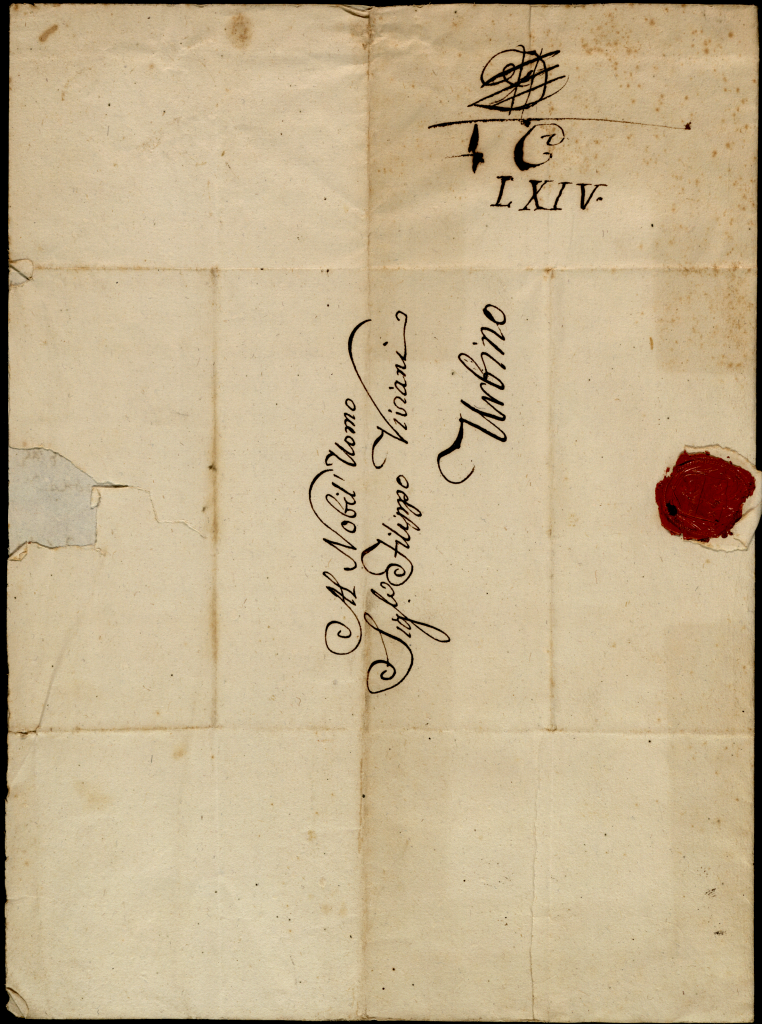 LXIV.
Al Nobil' Uomo
Sig.re Filippo Viviani
Urbino